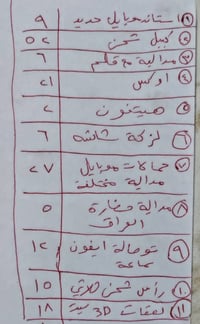 ١ استاند موبايل حديد ٩
٢ كيبل شحن ٥٢
٣ مدالية مع قلم ٦
٤ اوكس ٢١
٥ هيتفون ٢
٦ لزكة شاشه ٦
٧ حمالات موبايل
مدالية مختلف ٢٧
٨ مدالية حضارة
العراق ٥
٩ توصالة ايفون
سماعة ١٢
١٠ رأس شحن ١٥
١١ لصقات 3D ١٨